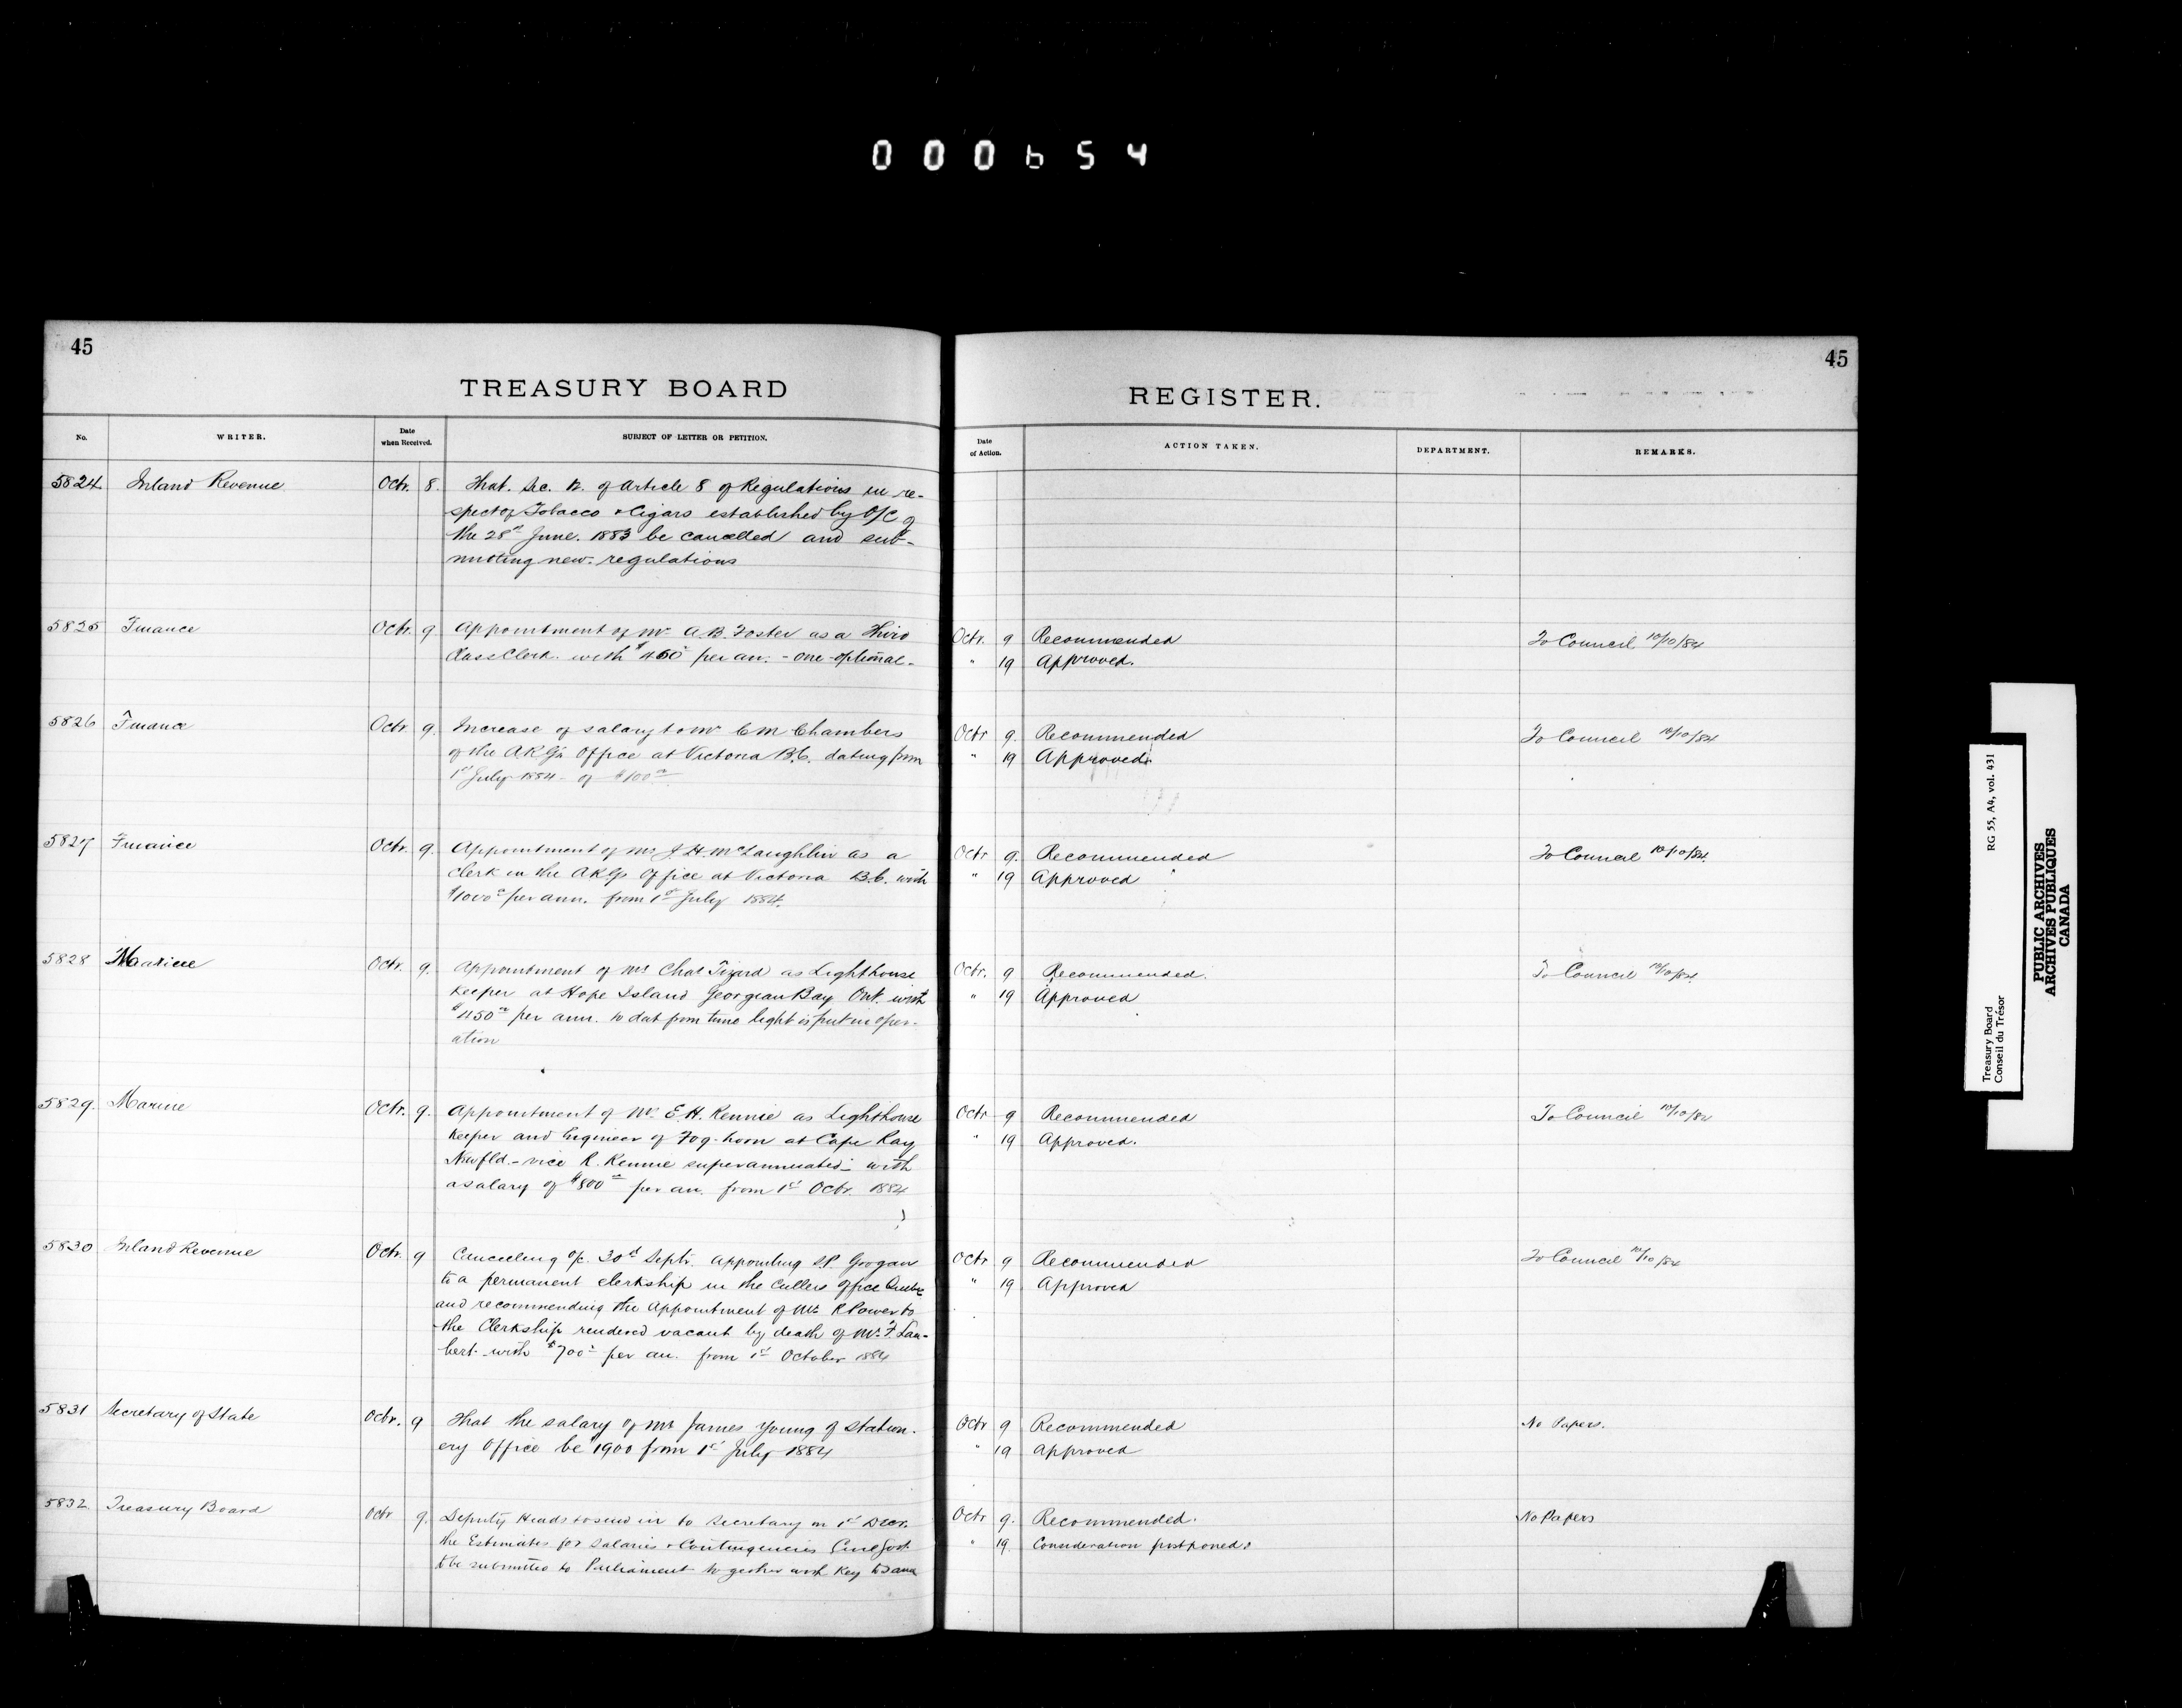 000654
45
TREASURY BOARD
No. WRITER. Date when Received. SUBJECT OF LETTER OR PETITION.
5824 Inland Revenue Octr. 8. That. Sec. 12. of Article 8 of Regulations in re-
spect of Tobacco & Cigars established by O/C of
the 28th June. 1883 be cancelled and sub-
mitting new. regulations
5825 Finance Octr. 9 Appointment of Mr A.B. Foster as a Third
Class Clerk. with $450 per an: - one optional -
5826 Finance Octr. 9. Increase of salary to Mr C M Chambers
of the ARG's Office at Victoria B.C. dating from
1st July 1884 - of $100
5827 Finance Octr. 9. Appointment of Mr J.H. McLaughlin as a
Clerk in the ARGs Office at Victoria B.C. with
$1000 per ann. from 1st July 1884.
5828 Marine Octr. 9. Appointment of Mr Chas Tizard as Lighthouse
Keeper at Hope Island Georgian Bay Ont. with
$450 per ann. to dat from time light is put in oper-
ation
5829. Marine Octr. 9. Appointment of Mr. E.H. Rennie as Lighthouse
Keeper and Engineer of Fog-horn at Cape Ray
Newfld. - vice R. Rennie superannuated; with
a salary of $800 per an. from 1st Octr. 1884
5830 Inland Revenue Octr. 9 Cancelling O/C. 30th Septr. appointing Grogan
to a permanent clerkship in the Cullers Office Quebec
and recommending the Appointment of Mr. R Power to
the Clerkship rendered vacant by death of Mr. F. Lam-
bert - with $700 per an. from 1st October 1884
5831 Secretary of State Octr. 9 That the salary of Mr James Young of Station-
ery Office be $1900 from 1st July 1884
5832. Treasury Board Octr 9. Deputy Heads to send in to Secretary on 1st Decr.
the Estimates for Salaries & Contingencies Civil Govt
to be submitted to Parliament together with Key to same
45
REGISTER.
Date of Action. ACTION TAKEN. DEPARTMENT. REMARKS.
Octr. 9 Recommended To Council 10/10/84
" 19 Approved.
Octr 9. Recommended To Council 10/10/84
" 19 Approved.
Octr 9. Recommended To Council 10/10/84.
" 19 Approved
Octr. 9 Recommended. To Council 10/10/84.
" 19 Approved
Octr 9 Recommended To Council 10/10/84
" 19 Approved.
Octr 9 Recommended To Council 10/10/84
" 19 Approved
Octr 9 Recommended No Papers.
" 19 Approved
Octr 9. Recommended. No Papers
" 19. Consideration postponed.
Treasury Board RG 55, A4, vol. 431
Conseil du Trésor
PUBLIC ARCHIVES
ARCHIVES PUBLIQUES
CANADA